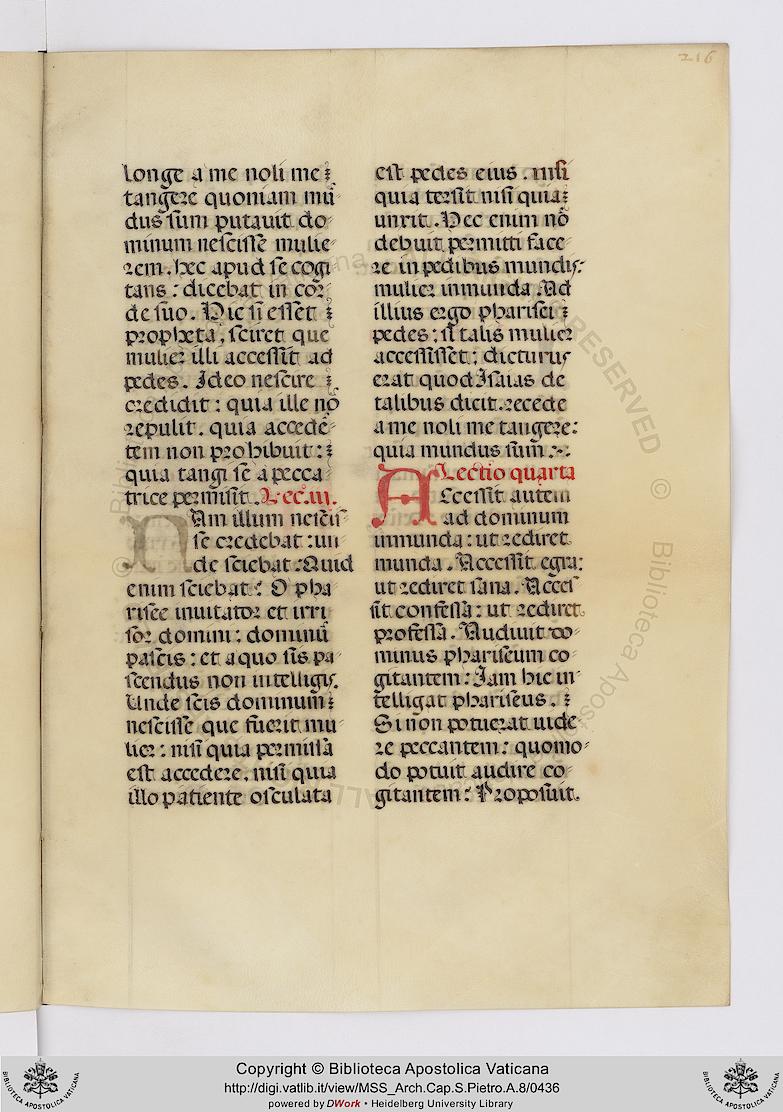 216
longe a me noli me
tangere quoniam mū
dus sum putauit do
minum nescisse mulie
rem. hec apud se cogi
tans : dicebat in cor
de suo. Hic si esset
propheta, sciret que
mulier illi accessit ad
pedes. Ideo nescire
credidit : quia ille nō
repulit. quia accedē
tem non prohibuit :
quia tangi se a pecca
trice permisit. Lec. iii.
Nam illum nescis
se credebat : un
de sciebat : Quid
enim sciebat : O pha
risee inuitator et irri
sor domini : dominū
pascis : et a quo sis pa
scendus non intelligis.
Unde scis dominum
nescisse que fuerit mu
lier : nisi quia permissa
est accedere. nisi quia
illo patiente osculata
est pedes eius. nisi
quia tersit nisi quia
unxit. Hec enim nō
debuit permitti face
re in pedibus mundis:
mulier inmunda. Ad
illius ergo pharisei
pedes : si talis mulier
accessisset : dicturus
erat quod Isaias de
talibus dicit. recede
a me noli me tangere:
quia mundus sum :
Lectio quarta
Accessit autem
ad dominum
inmunda : ut rediret
munda. Accessit egra:
ut rediret sana. Acces
sit confessa : ut rediret
professa. Audiuit do
minus phariseum co
gitantem : Iam hic in
telligat phariseus.
Si non potuerat uide
re peccantem : quomo
do potuit audire co
gitantem : Proposuit.
RESERVED © Biblioteca Apos
Copyright © Biblioteca Apostolica Vaticana
http://digi.vatlib.it/view/MSS_Arch.Cap.S.Pietro.A.8/0436
powered by DWork • Heidelberg University Library
BIBLIOTECA APOSTOLICA VATICANA
BIBLIOTECA APOSTOLICA VATICANA